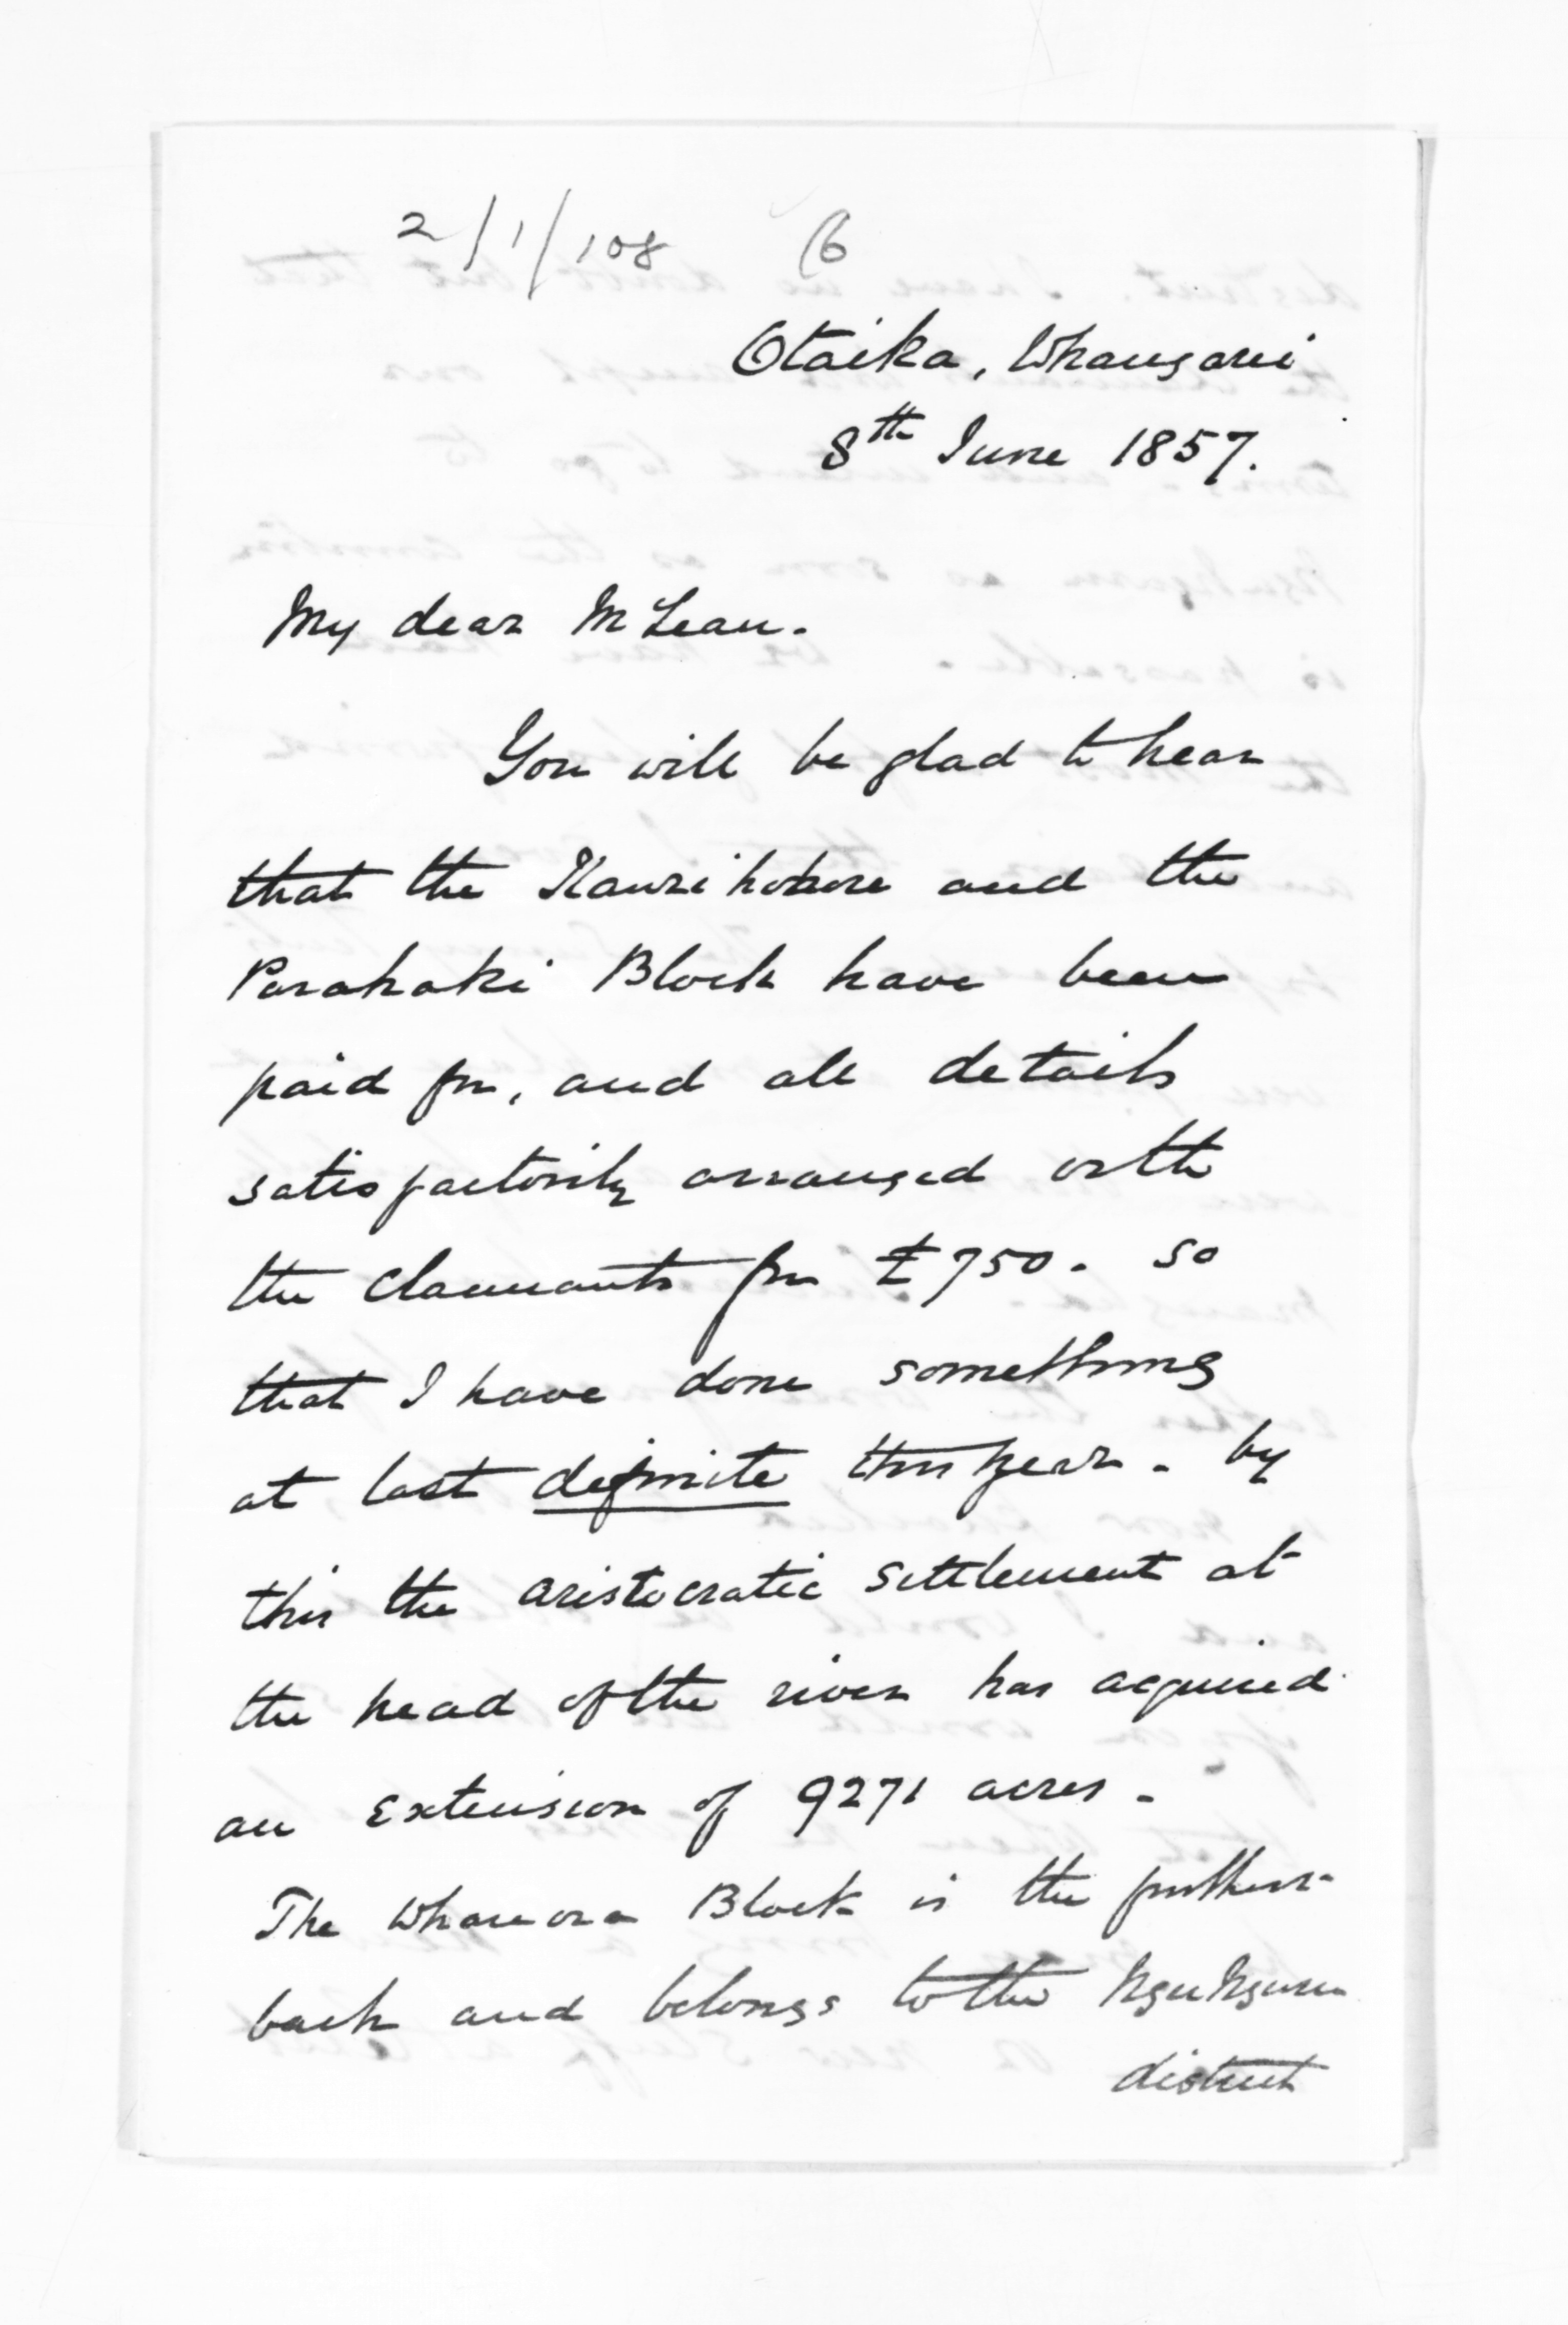 2/1/108 (6
Otaika, Whangarei
8th June 1857.
My dear McLean.
You will be glad to hear
that the Kaurihohore and the
Parahaki Block have been
paid for, and all details
satisfactorily arranged with
the claimants for £750. So
that I have done something
at last definite this year. by
this the aristocratic settlement at
the head of the river has acquired
an extension of 9271 acres.
The Whareora Block is the further
back and belongs to the Ngunguru
district